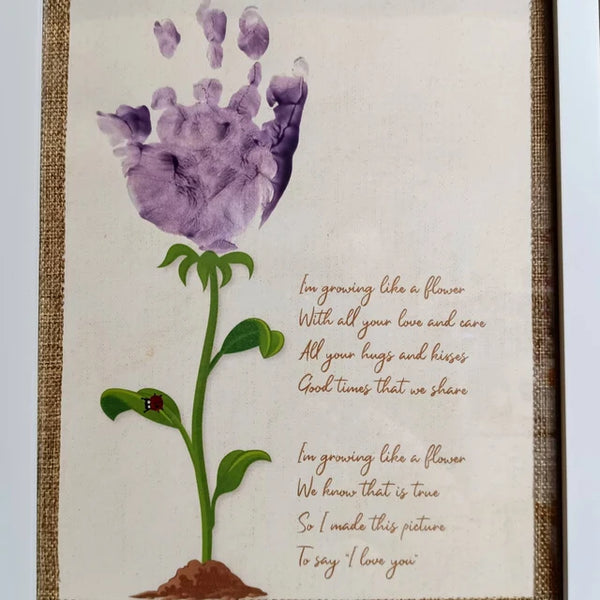 I'm growing like a flower
With all your love and care
All your hugs and kisses
Good times that we share
I'm growing like a flower
We know that is true
So I made this picture
To say "I love you"